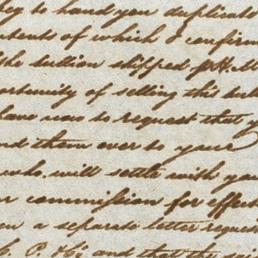 to hand you duplicate
of which I confirm
the bullion shipped
of selling this
have now to request that
them over to your
who will settle with you
commission for effect
a separate letter
and that the